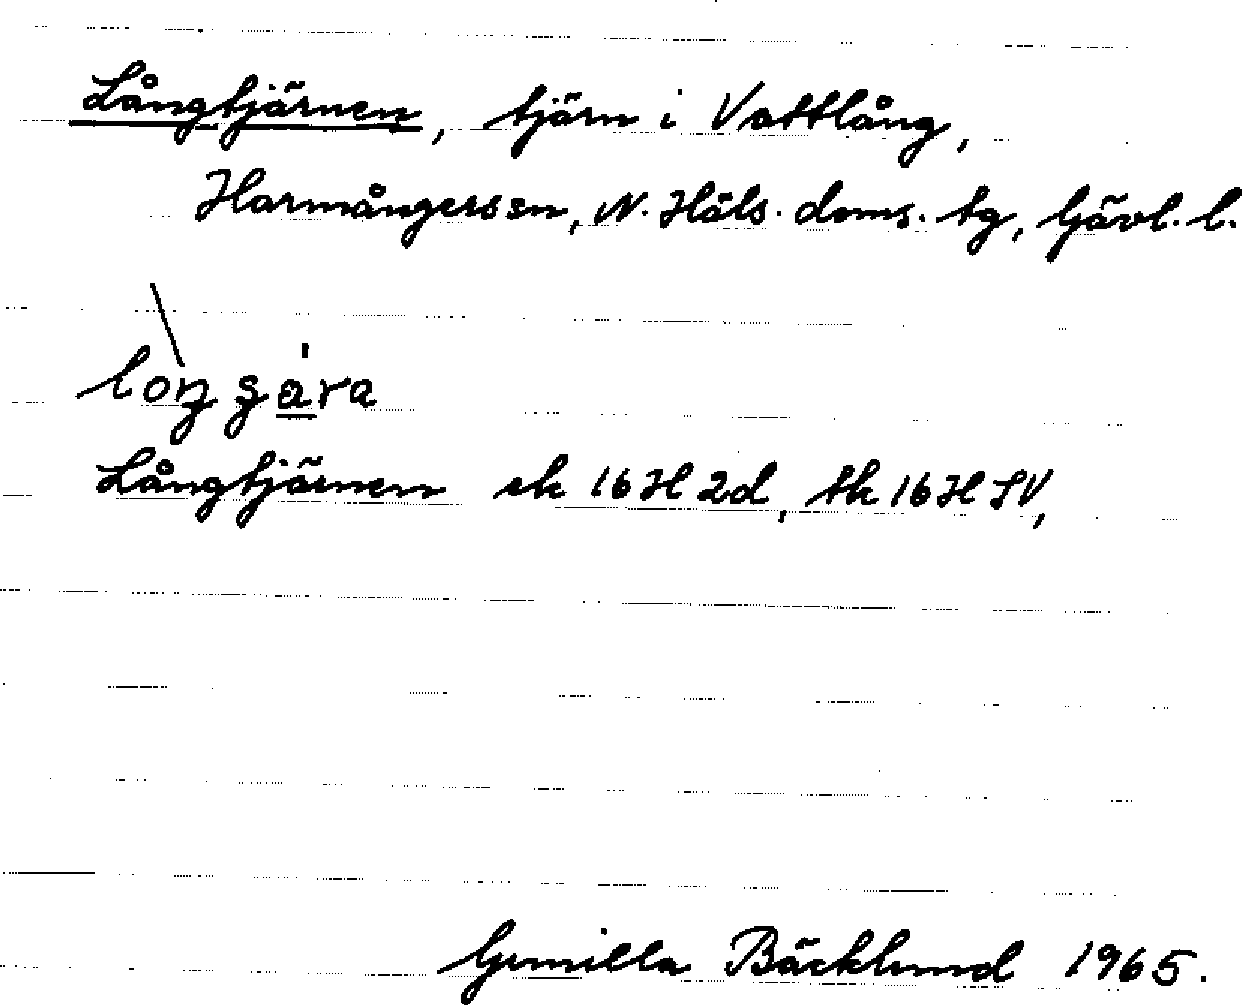 Långtjärnen, tjärn i Vattlång,
Harmångerssn, N. Häls. doms. tg, Gävl. l.
Långtjärnen ek 16H 2d, tk 16H SV,
Gunilla Bäcklund 1965.